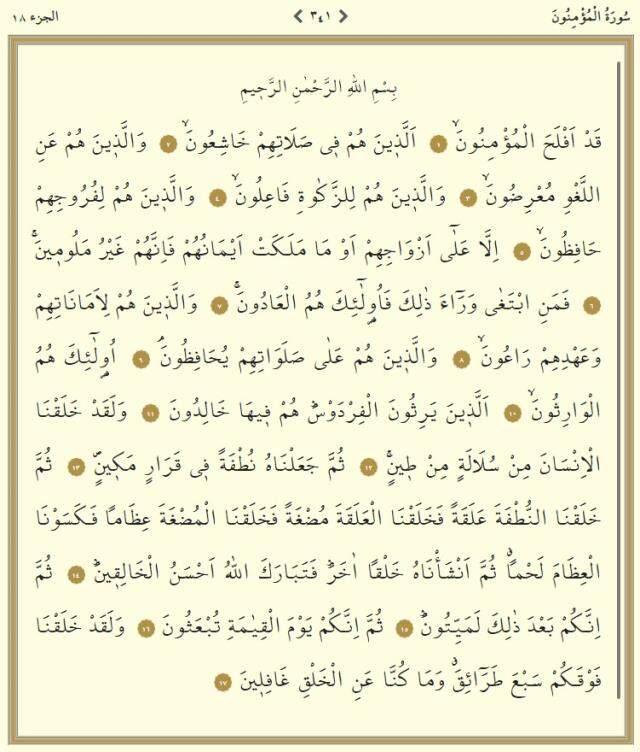 سُورَةُ الْمُؤْمِنُونَ ٣٤١ الجزء ١٨
بِسْمِ اللهِ الرَّحْمٰنِ الرَّحٖيمِ
قَدْ اَفْلَحَ الْمُؤْمِنُونَۙ ١ اَلَّذٖينَ هُمْ فٖى صَلَاتِهِمْ خَاشِعُونَۙ ٢ وَالَّذٖينَ هُمْ عَنِ
اللَّغْوِ مُعْرِضُونَۙ ٣ وَالَّذٖينَ هُمْ لِلزَّكٰوةِ فَاعِلُونَۙ ٤ وَالَّذٖينَ هُمْ لِفُرُوجِهِمْ
حَافِظُونَۙ ٥ اِلَّا عَلٰٓى اَزْوَاجِهِمْ اَوْ مَا مَلَكَتْ اَيْمَانُهُمْ فَاِنَّهُمْ غَيْرُ مَلُومٖينَۚ
٦ فَمَنِ ابْتَغٰى وَرَٓاءَ ذٰلِكَ فَاُولٰٓئِكَ هُمُ الْعَادُونَۚ ٧ وَالَّذٖينَ هُمْ لِاَمَانَاتِهِمْ
وَعَهْدِهِمْ رَاعُونَۙ ٨ وَالَّذٖينَ هُمْ عَلٰى صَلَوَاتِهِمْ يُحَافِظُونَۘ ٩ اُولٰٓئِكَ هُمُ
الْوَارِثُونَۙ ١٠ اَلَّذٖينَ يَرِثُونَ الْفِرْدَوْسَؕ هُمْ فٖيهَا خَالِدُونَ ١١ وَلَقَدْ خَلَقْنَا
الْاِنْسَانَ مِنْ سُلَالَةٍ مِنْ طٖينٍۚ ١٢ ثُمَّ جَعَلْنَاهُ نُطْفَةً فٖى قَرَارٍ مَكٖينٍࣕ ١٣ ثُمَّ
خَلَقْنَا النُّطْفَةَ عَلَقَةً فَخَلَقْنَا الْعَلَقَةَ مُضْغَةً فَخَلَقْنَا الْمُضْغَةَ عِظَامًا فَكَسَوْنَا
الْعِظَامَ لَحْمًاࣗ ثُمَّ اَنْشَأْنَاهُ خَلْقًا اٰخَرَؕ فَتَبَارَكَ اللهُ اَحْسَنُ الْخَالِقٖينَؕ ١٤ ثُمَّ
اِنَّكُمْ بَعْدَ ذٰلِكَ لَمَيِّتُونَؕ ١٥ ثُمَّ اِنَّكُمْ يَوْمَ الْقِيٰمَةِ تُبْعَثُونَ ١٦ وَلَقَدْ خَلَقْنَا
فَوْقَكُمْ سَبْعَ طَرَٓائِقَࣗ وَمَا كُنَّا عَنِ الْخَلْقِ غَافِلٖينَ ١٧